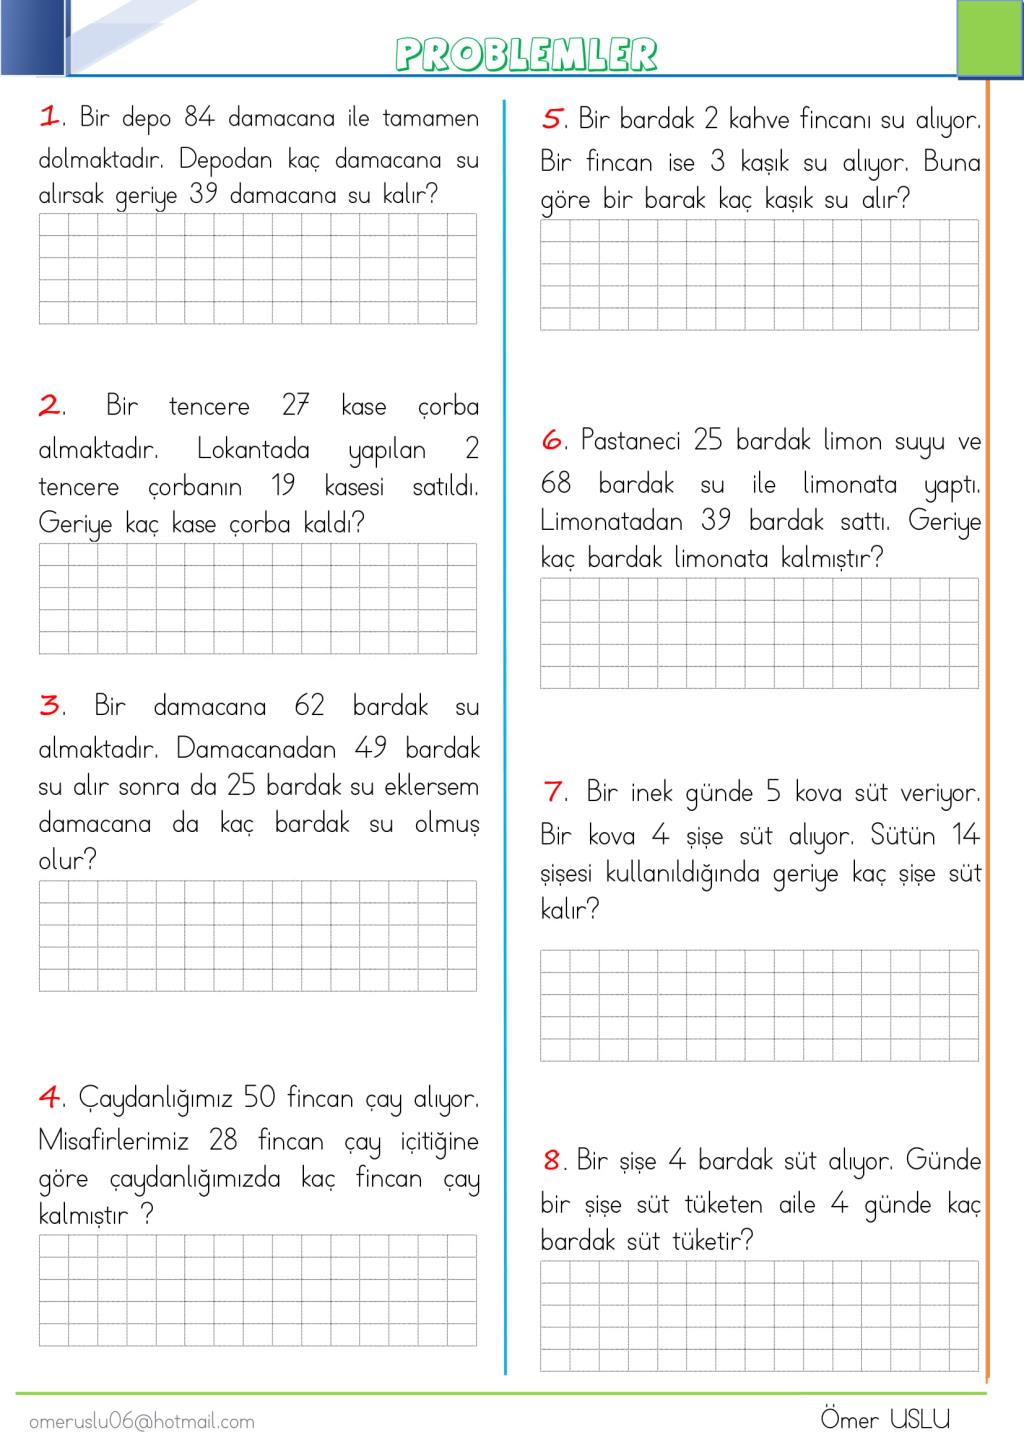 PROBLEMLER
1. Bir depo 84 damacana ile tamamen
dolmaktadır. Depodan kaç damacana su
alırsak geriye 39 damacana su kalır?
2. Bir tencere 27 kase çorba
almaktadır. Lokantada yapılan 2
tencere çorbanın 19 kasesi satıldı.
Geriye kaç kase çorba kaldı?
3. Bir damacana 62 bardak su
almaktadır. Damacanadan 49 bardak
su alır sonra da 25 bardak su eklersem
damacana da kaç bardak su olmuş
olur?
4. Çaydanlığımız 50 fincan çay alıyor.
Misafirlerimiz 28 fincan çay içitiğine
göre çaydanlığımızda kaç fincan çay
kalmıştır ?
5. Bir bardak 2 kahve fincanı su alıyor.
Bir fincan ise 3 kaşık su alıyor. Buna
göre bir barak kaç kaşık su alır?
6. Pastaneci 25 bardak limon suyu ve
68 bardak su ile limonata yaptı.
Limonatadan 39 bardak sattı. Geriye
kaç bardak limonata kalmıştır?
7. Bir inek günde 5 kova süt veriyor.
Bir kova 4 şişe süt alıyor. Sütün 14
şişesi kullanıldığında geriye kaç şişe süt
kalır?
8. Bir şişe 4 bardak süt alıyor. Günde
bir şişe süt tüketen aile 4 günde kaç
bardak süt tüketir?
omeruslu06@hotmail.com
Ömer USLU